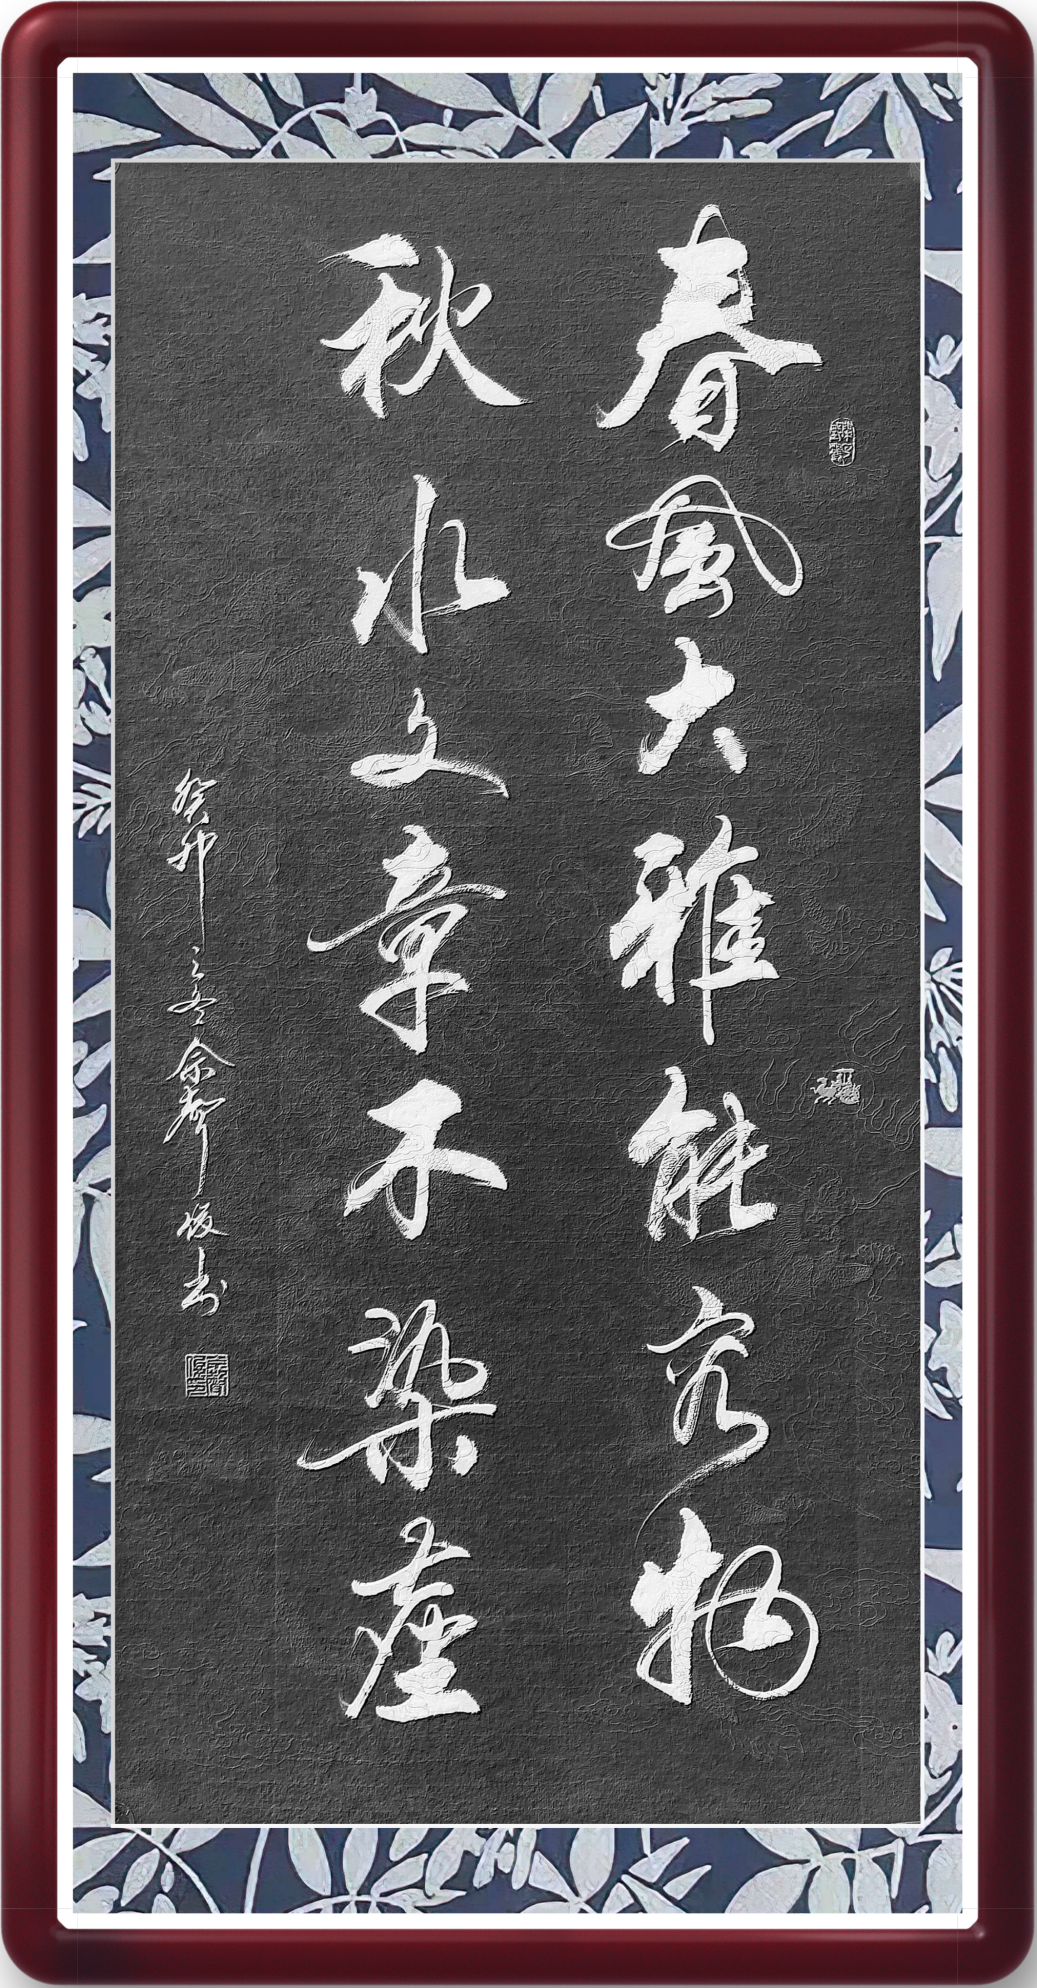 春風大雅能容物
秋水文章不染塵
癸卯之冬余声俊书